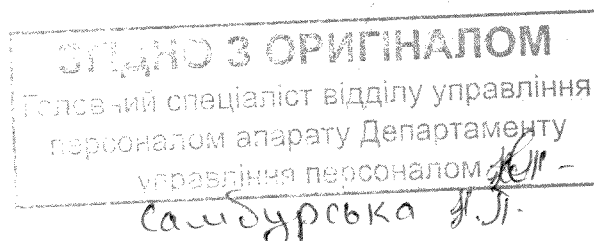 ЗГІДНО З ОРИГІНАЛОМ
Головний спеціаліст відділу управління
персоналом апарату Департаменту
управління персоналом
Самбурська Н.П.